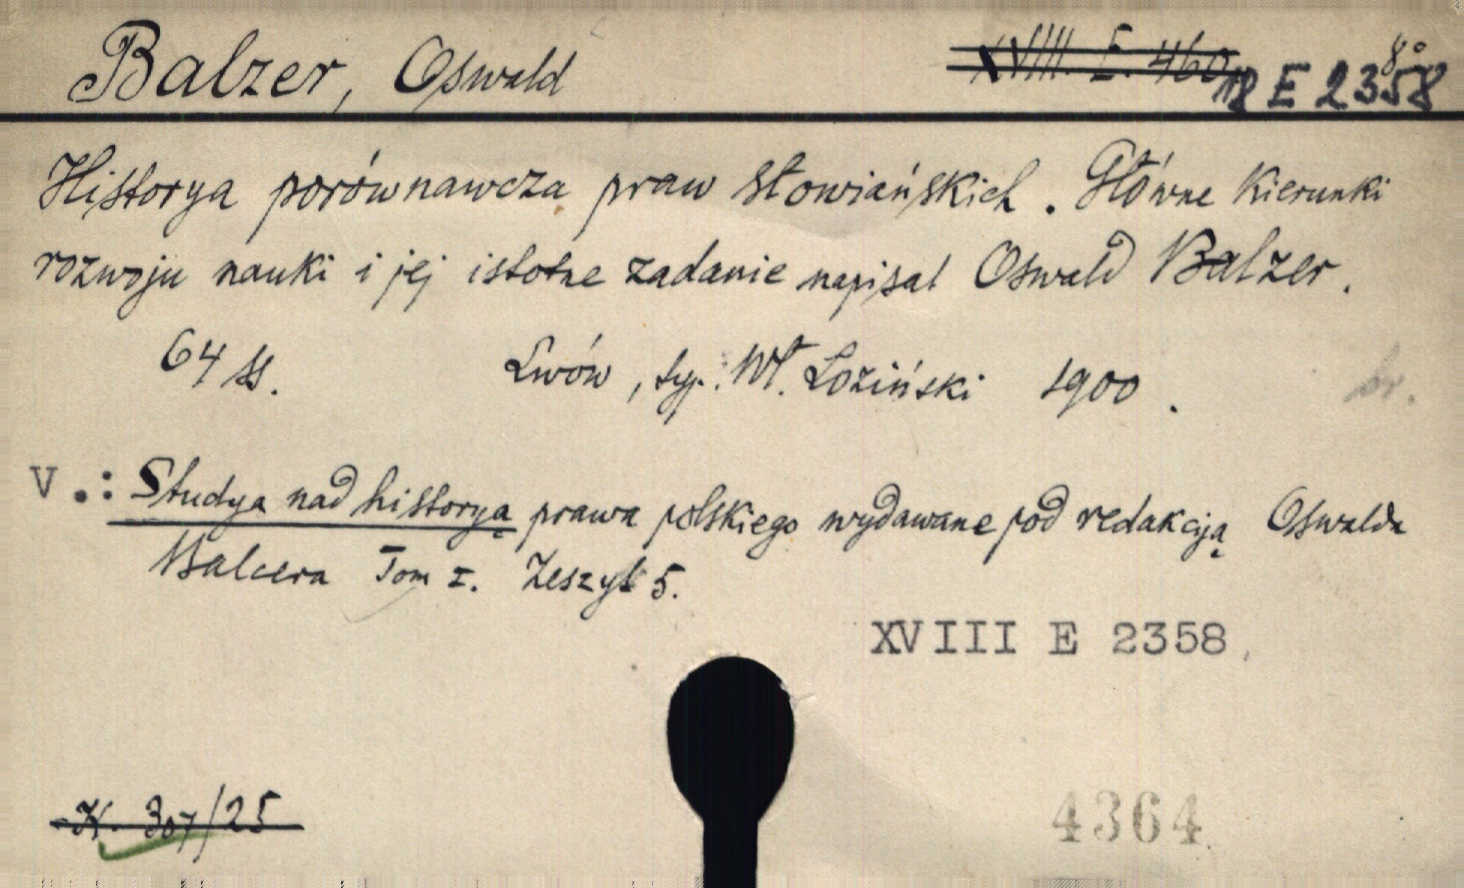 Balzer, Oswald XVIII. E. 460 18 E 2358 8°
Historya porównawcza praw słowiańskich. Główne kierunki
rozwoju nauki i jej istotne zadanie napisał Oswald Balzer.
64 ss. Lwów, typ. Wł. Łoziński 1900. br.
V.: Studya nad historyą prawa polskiego wydawane pod redakcyją Oswalda
Balcera Tom I. Zeszyt 5.
XVIII E 2358
K. 307/25
4364